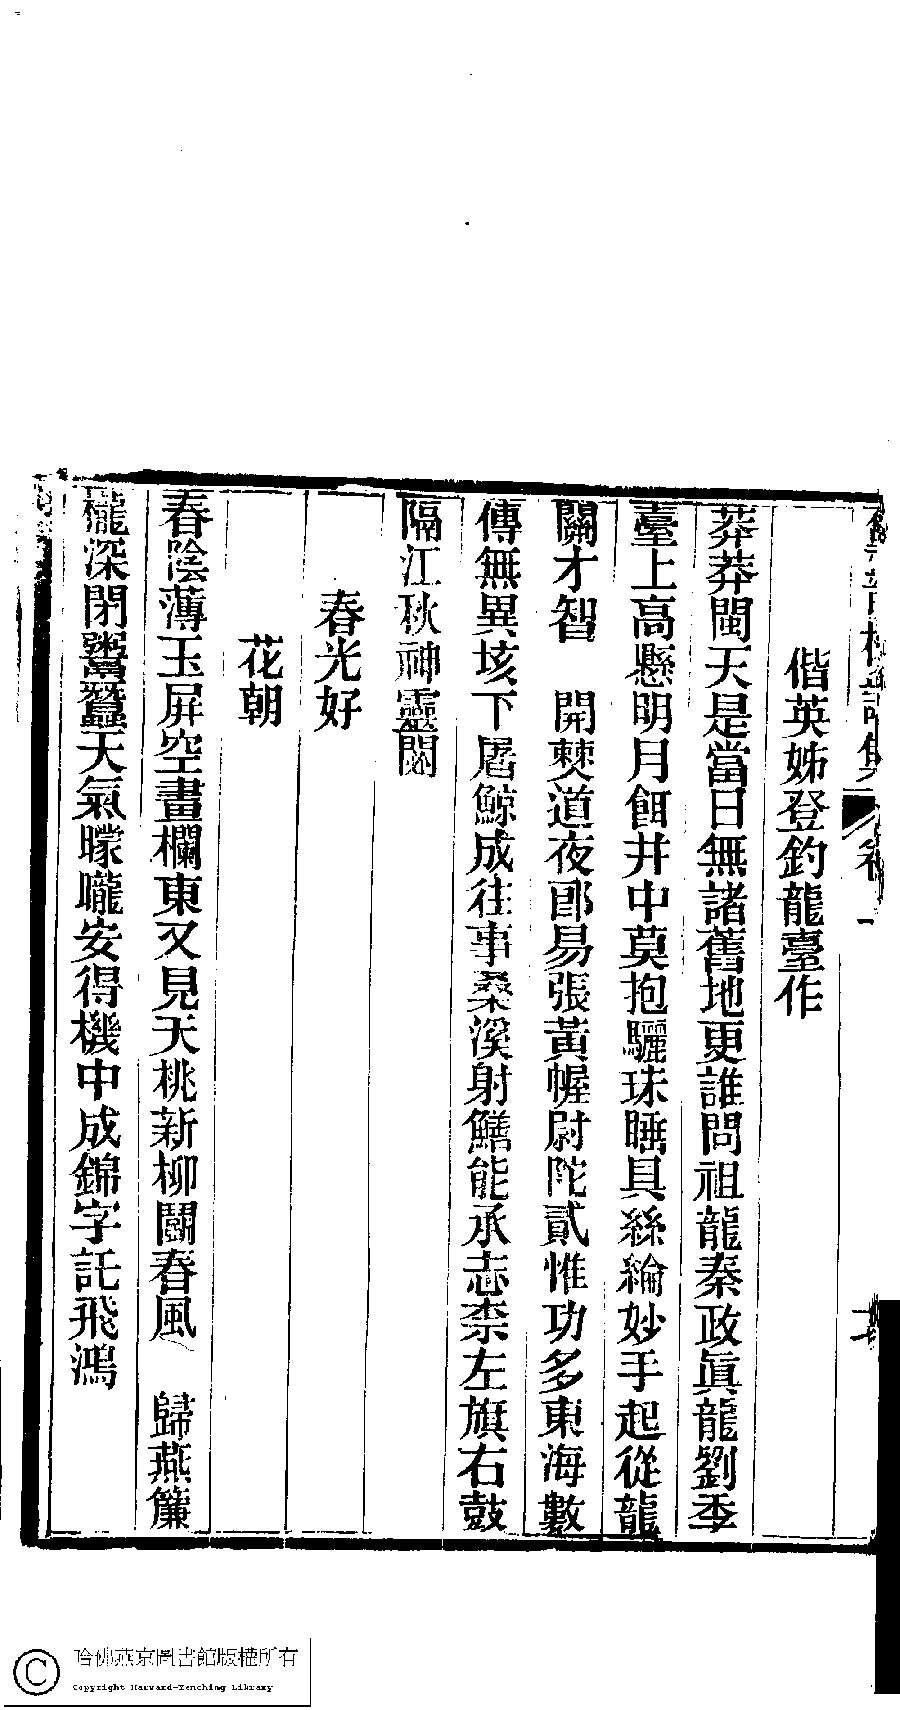 偕英姊登釣龍臺作
莽莽閩天是當日無諸舊地更誰問祖龍秦政眞龍劉季
臺上高懸明月餌井中莫抱驪珠睡具絲綸妙手起從龍
關才智　開僰道夜郎易張黃幄尉陀貳惟功多東海數
傳無異垓下屠鯨成往事桑溪射鱔能承志柰左旗右鼓
隔江秋神靈閟
春光好
花朝
春陰薄玉屏空畫欄東又見夭桃新柳鬪春風　歸燕簾
櫳深閉鬻蠶天氣曚曨安得機中成錦字託飛鴻
哈佛燕京圖書館版權所有
Copyright Harvard-Yenching Library